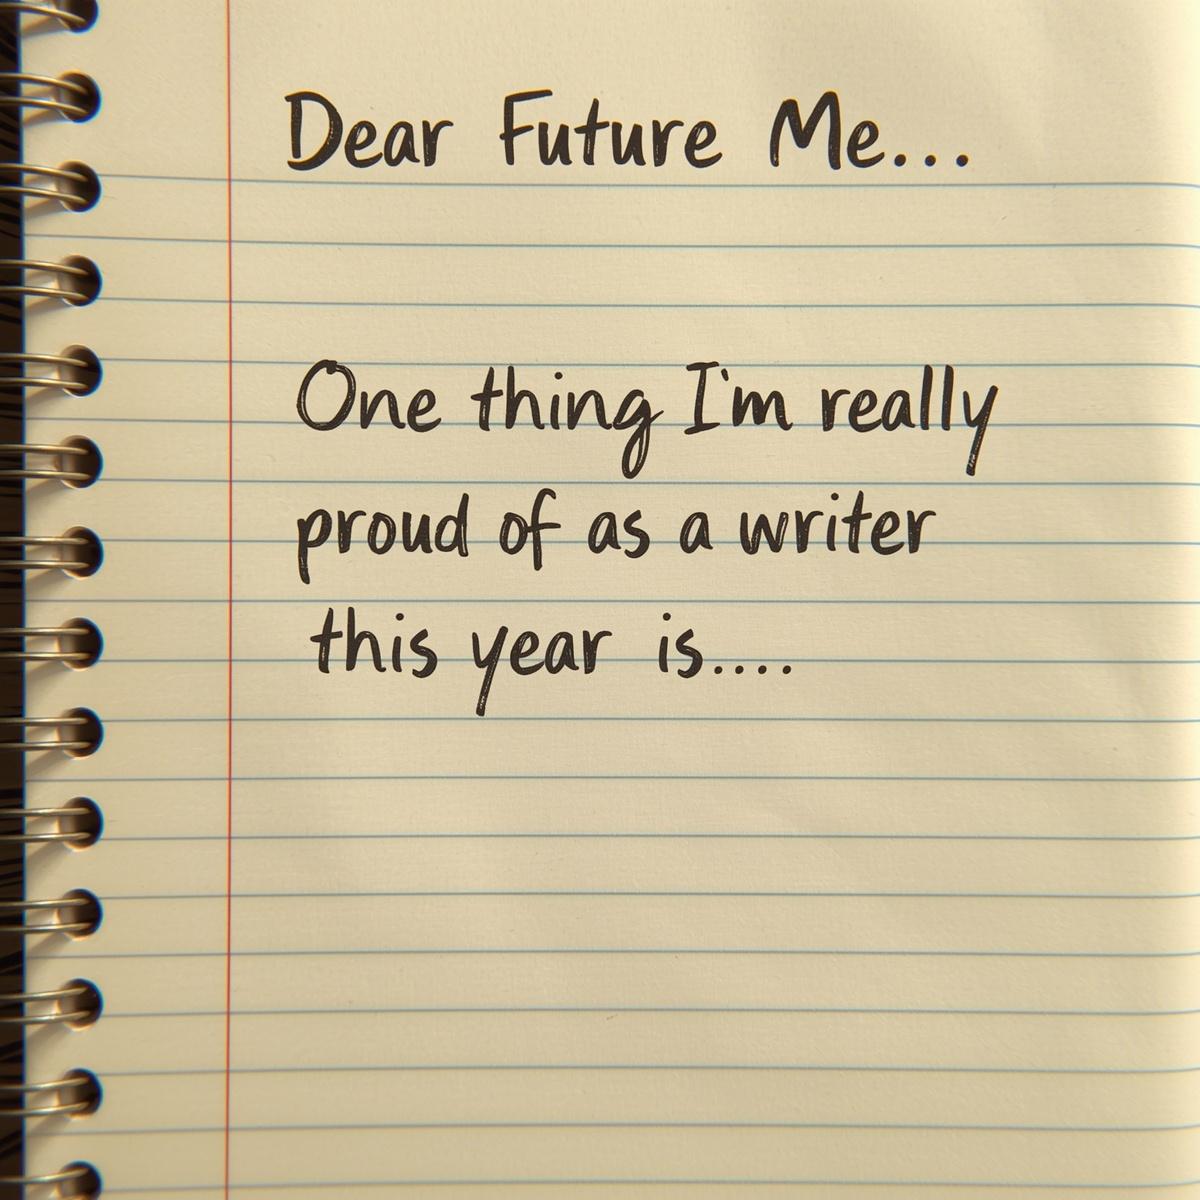 Dear Future Me...
One thing I'm really
proud of as a writer
this year is....